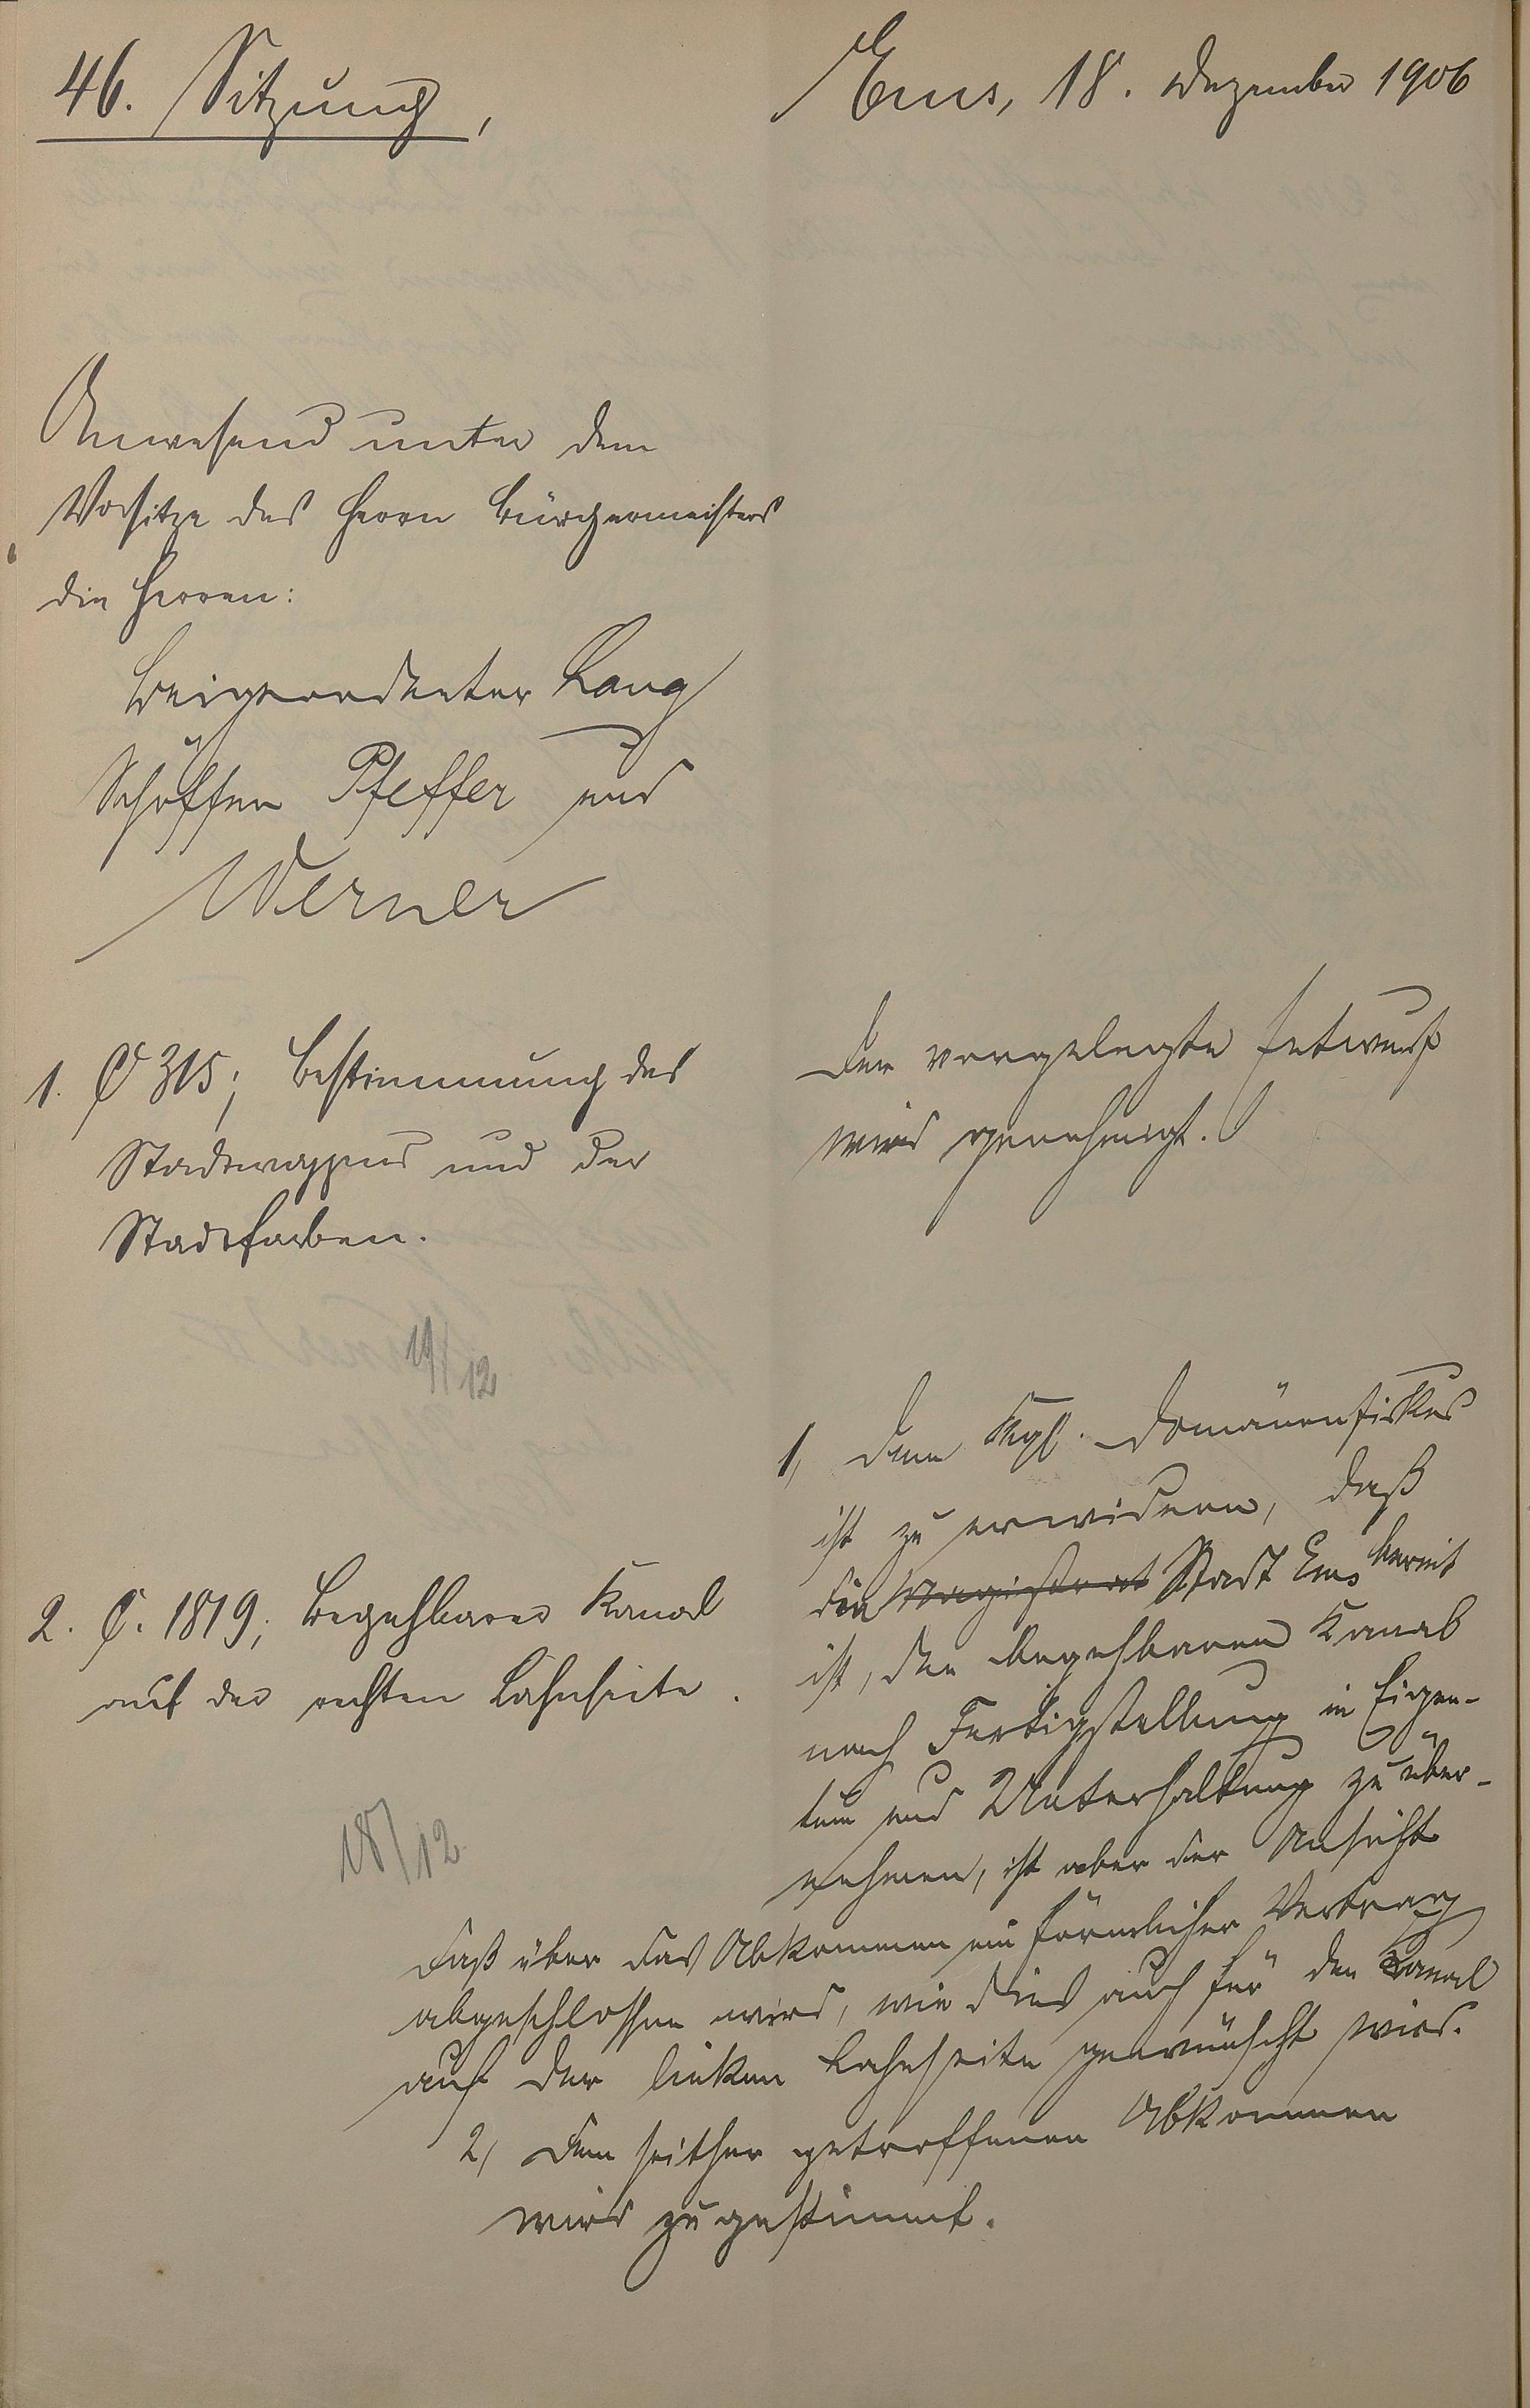 46. Sitzung,
Ems, 18. Dezember 1906
Anwesend unter dem
Vorsitze des Herrn Bürgermeisters
die Herren:
Beigeordneter Lang
Schöffen Pfeffer und
Werner
1. C 315; Bestimmung des
Stadtwappens und der
Stadtfarben.
Der vorgelegte Entwurf
wird genehmigt.
19/12
2. C. 1819; Begehbarer Kanal
auf der rechten Lahnseite.
18/12
1, Dem Kgl. Domänenfiskus
ist zu erwidern, daß
die Magistrat Stadt Ems bereit
ist, den begehbaren Kanal
nach Fertigstellung in Eigen-
tum und Unterhaltung zu über-
nehmen, ist aber der Ansicht
daß über das Abkommen ein förmlicher Vertrag
abgeschlossen wird, wie dies auch für den Kanal
auf der linken Lahnseite gewünscht wird.
2, Dem seither getroffenen Abkommen
wird zugestimmt.